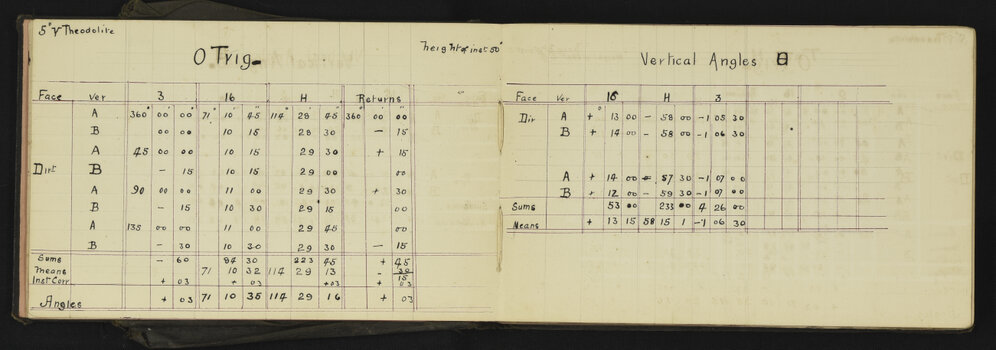 5" V Theodolite
O Trig
height of inst 50"
Face Ver 3 16 H Returns
A 360° 00' 00" 71° 10' 45" 114° 28' 45" 360° 00' 00"
B 00 00 10 15 28 30 — 15
A 45 00 00 10 15 29 30 + 15
Dirt B — 15 10 15 29 00 00
A 90 00 00 11 00 29 30 + 30
B — 15 10 30 29 15 00
A 135 00 00 11 00 29 45 00
B — 30 10 30 29 30 — 15
Sums — 60 84 30 223 45 + 45
Means 71 10 32 114 29 13 - 30
15
Inst Corr + 03 + 03 +03 + 03
Angles + 03 71 10 35 114 29 16 + 03
Vertical Angles
Face Ver 16 H 3
Dir A + 13 00 — 58 00 —1 05 30
B + 14 00 — 58 00 —1 06 30
A + 14 00 — 57 30 —1 07 00
B + 12 00 — 59 30 —1 07 00
Sums 53 00 233 00 4 26 00
Means + 13 15 58 15 1 —1 06 30